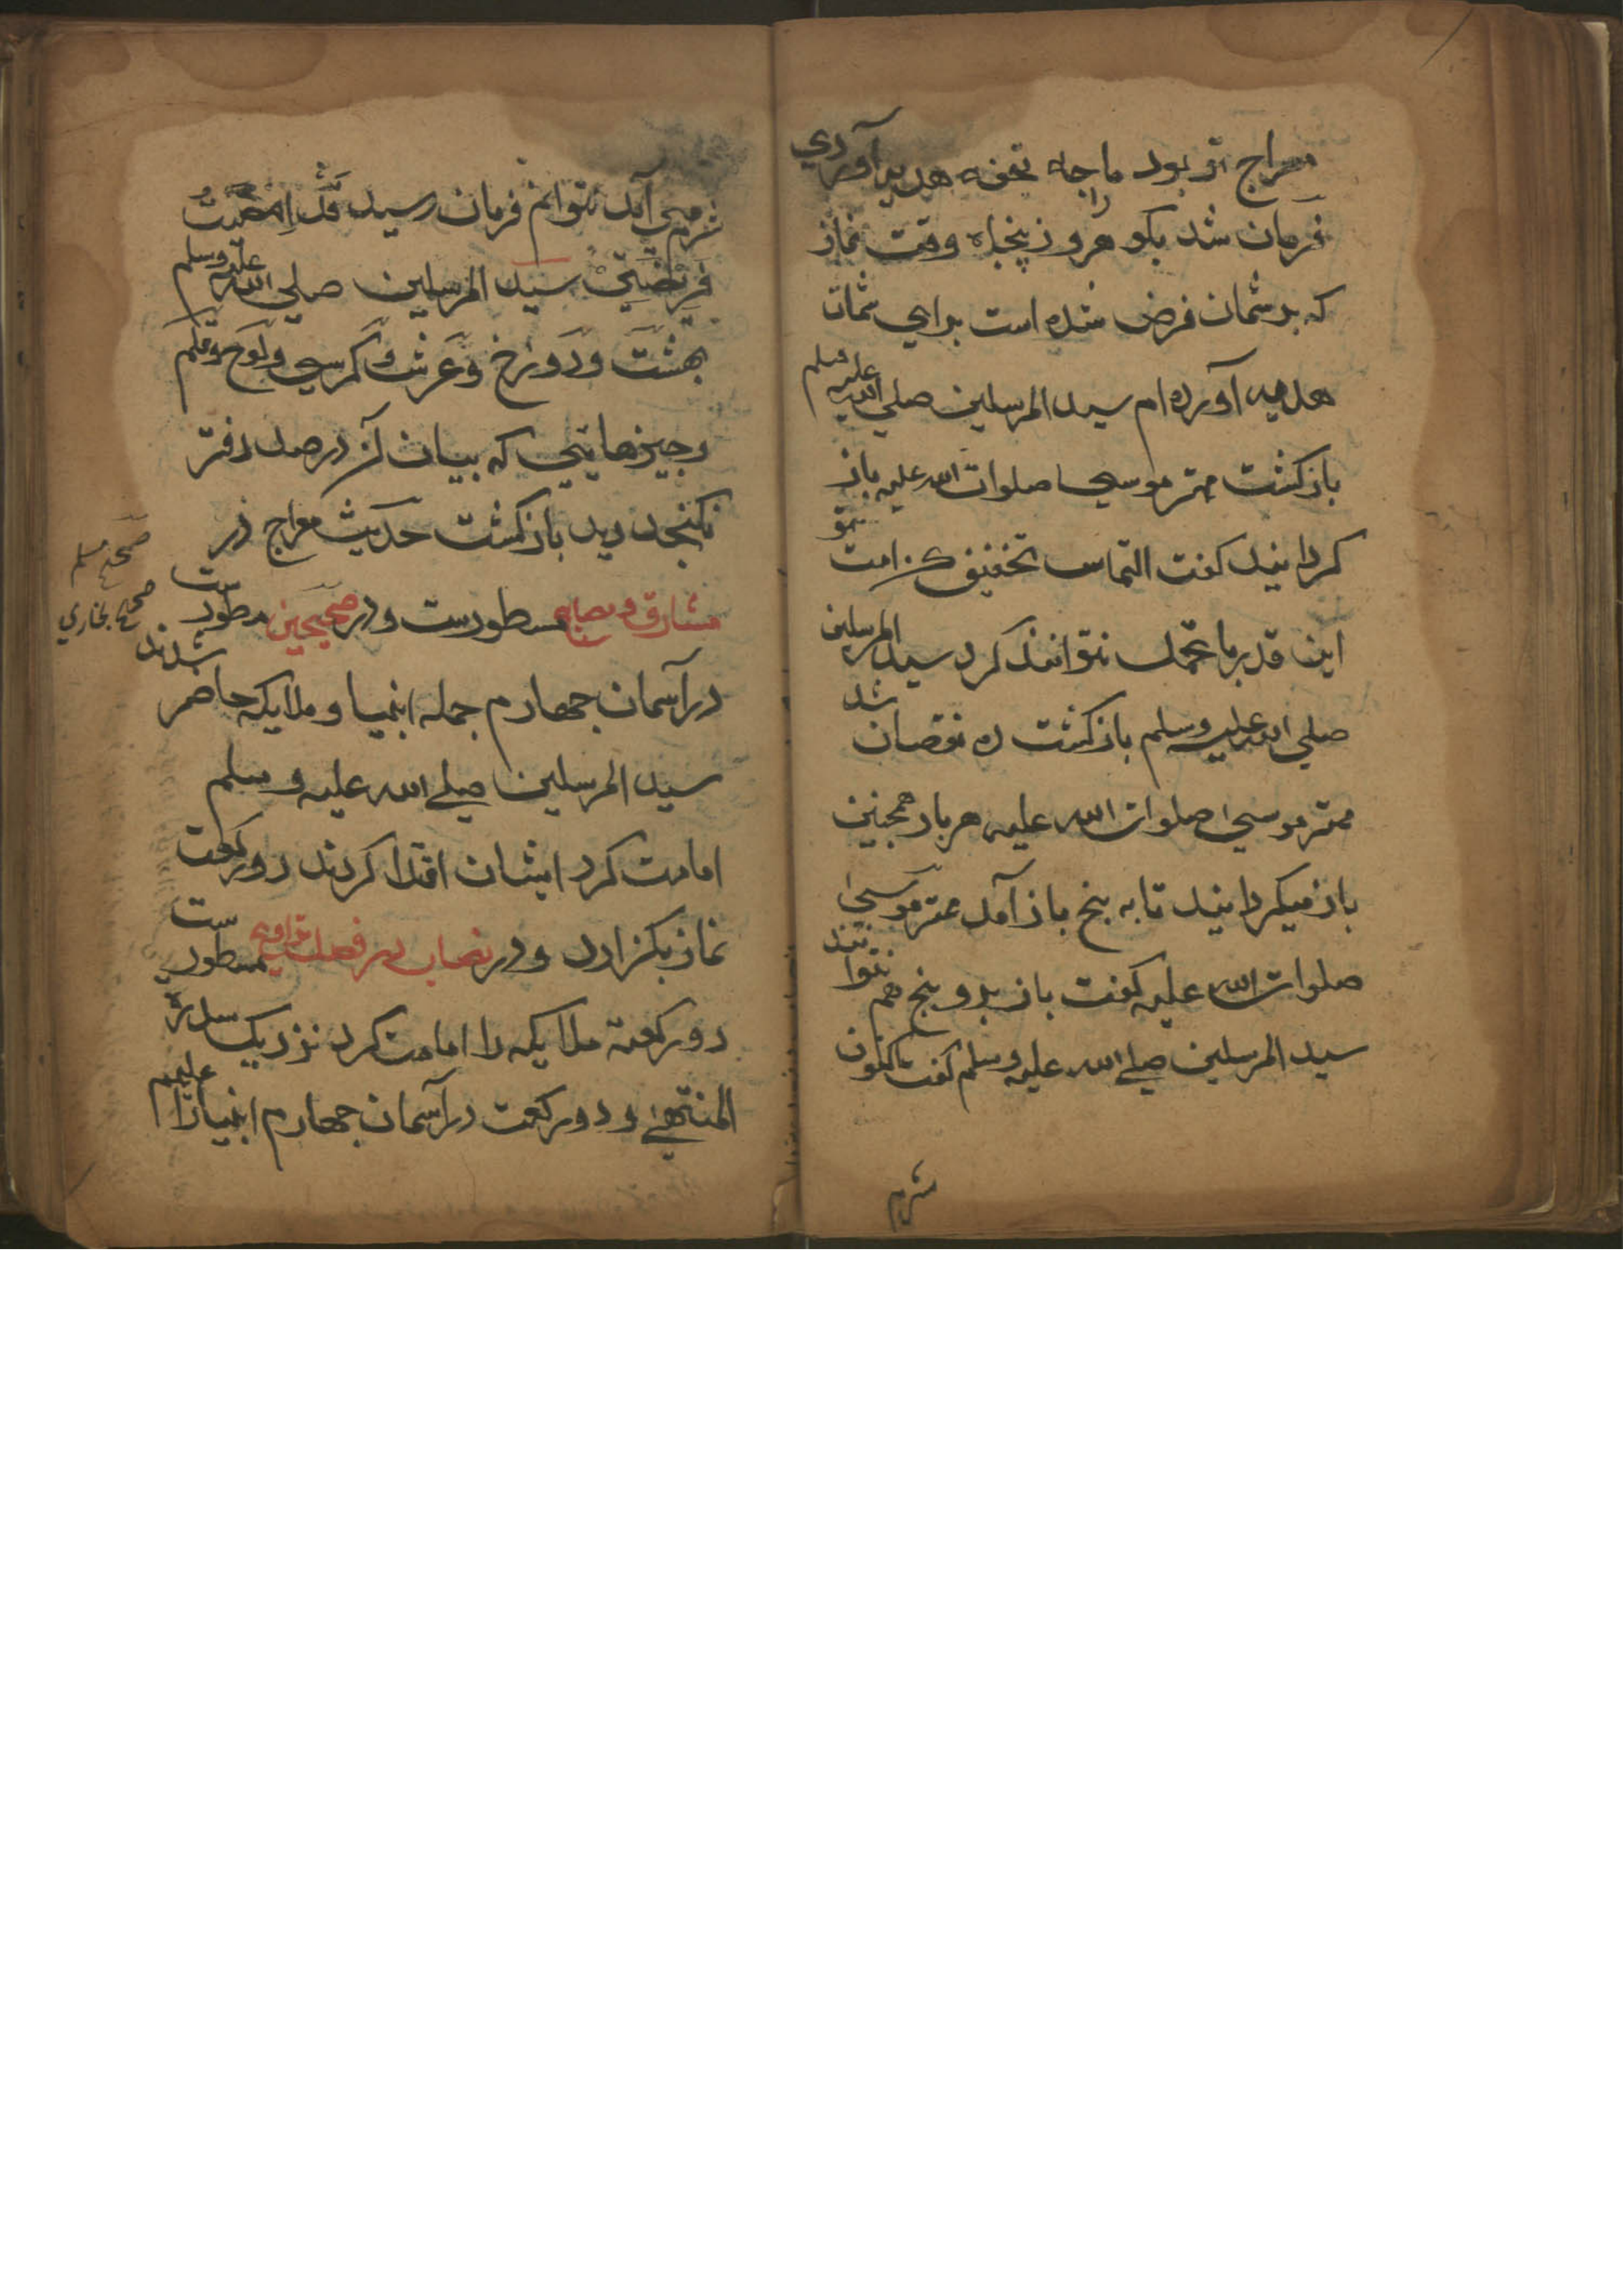 معراج تو بود ما را چه تحفه هدیه آوردي
فرمان شد بکو هر روز پنجاه وقت نماز
که بر شمان فرض شده است براي شمان
هدیه آورده ام سید المرسلین صلي الله علیه وسلم
باز کشت مهتر موسي صلوات الله علیه باز
کردانید کفت التماس تخفیف کن امت تو
این قدر را تحمل نتوانند کرد سید المرسلین
صلي الله علیه وسلم باز کشت ده نقصان شد
مهتر موسي صلوات الله علیه هر بار همچنین
باز میکردانید تا به پنج باز آمد مهتر موسي
صلوات الله علیه کفت باز برو پنج هم نتوانند
سید المرسلین صلے الله علیه وسلم کفت اکنون
شرم
شرم مي آید نتوانم فرمان رسید قَدْ اَمْضَیْتُ
فَرِیْضَتِيْ سید المرسلین صلي الله علیه وسلم
بهشت و دوزخ و عرش و کرسي و لوح و قلم
و چیزهایي که بیان آن در صد دفتر
نکنجد دید باز کشت حدیث معراج در
مشارق و مصابیح مسطورست و در صحیحین مسطورست
صحیح مسلم
صحیح بخاري
در آسمان چهارم جمله انبیا و ملایکه حاضر شدند
سید المرسلین صلے الله علیه وسلم
امامت کرد ایشان اقتدا کردند دو رکعت
نماز بکزارد و در نصاب در فصل تراویح مسطورست
دو رکعت ملایکه را امامت کرد نزدیک سدرة
المنتهے و دو رکعت در آسمان چهارم انبیا را علیهم